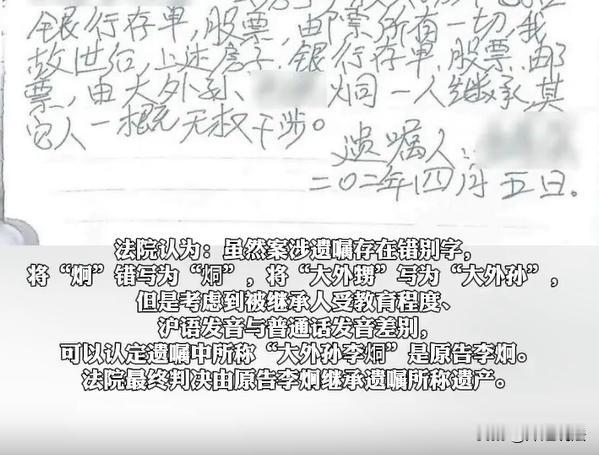 全银行存单,股票,邮票所有一切,我
故世后,上述房子,银行存单.股票.邮
票,由大外孙 烔一人继承其
它人一概无权干涉。
遗嘱人:
二0二年四月五日.
法院认为：虽然案涉遗嘱存在错别字，
将“炯”错写为“烔”，将“大外甥”写为“大外孙”，
但是考虑到被继承人受教育程度、
沪语发音与普通话发音差别，
可以认定遗嘱中所称“大外孙李烔”是原告李炯。
法院最终判决由原告李炯继承遗嘱所称遗产。